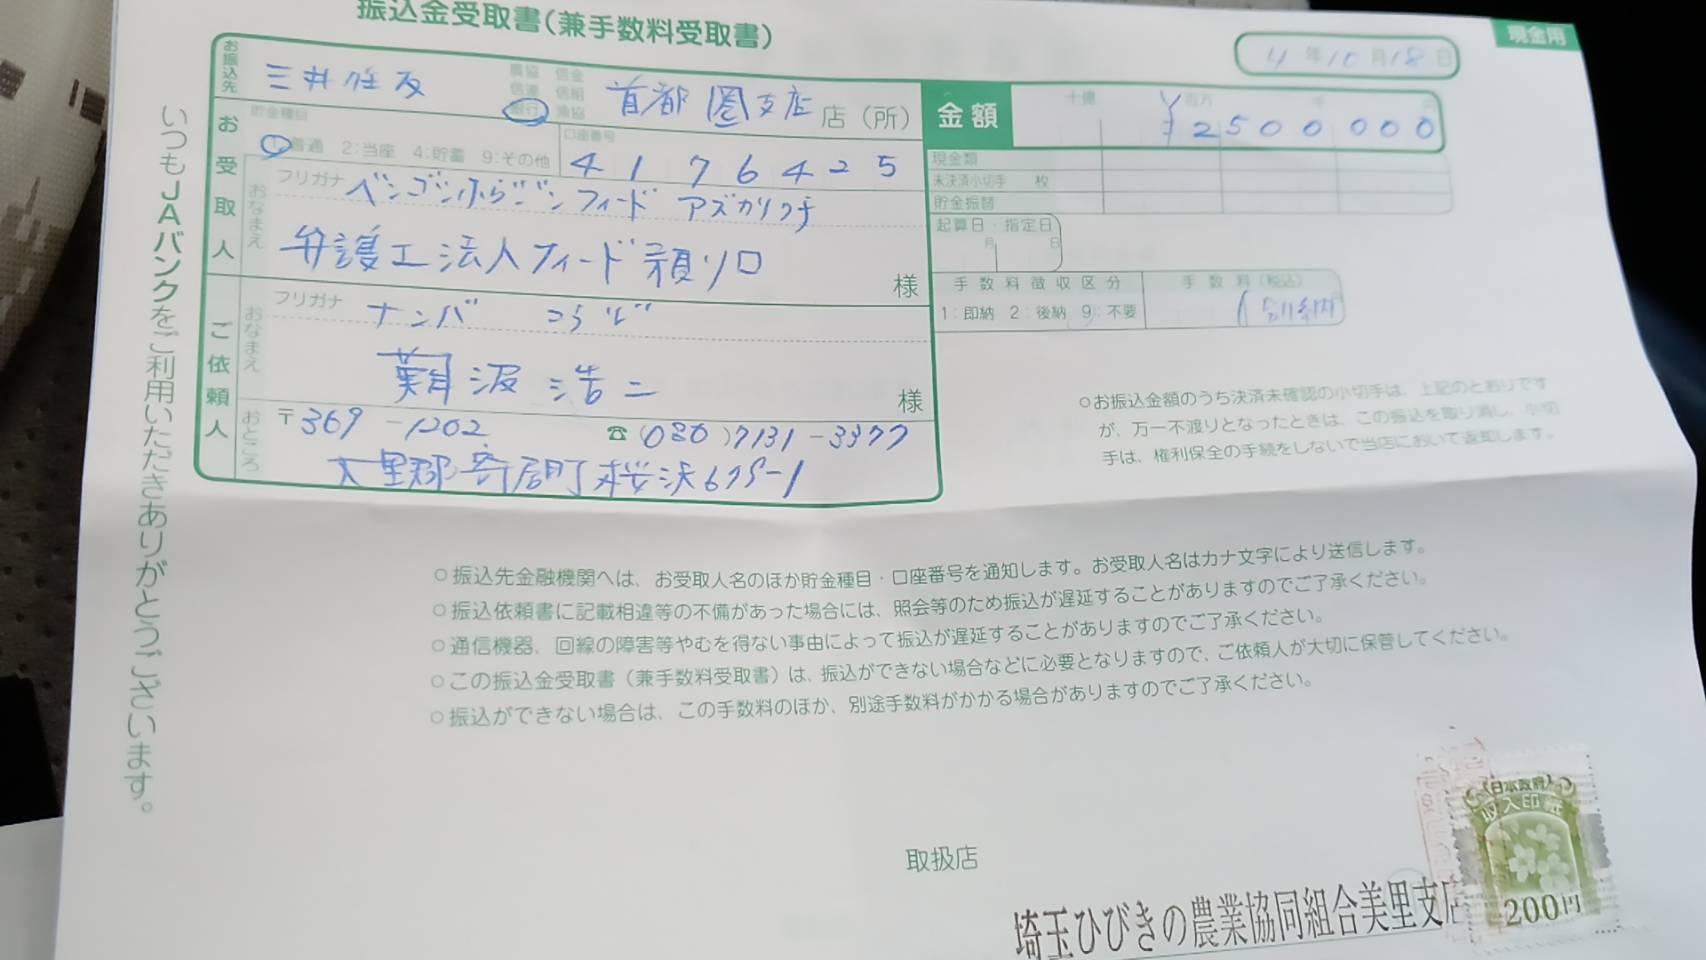 振込金受取書(兼手数料受取書)
現金用
4年10月18日
お振込先
三井住友
農協 信金
信連 信組
銀行 漁協
首都圏支店 店(所)
金額
十億 百万 千 円
¥2500000
貯金種目
1:普通 2:当座 4:貯蓄 9:その他
口座番号
4176425
現金類
未決済小切手 枚
貯金振替
起算日・指定日
月 日
お受取人
おなまえ
フリガナ
フィード アズカリクチ
弁護士法人フィード預リ口
様
手数料徴収区分
手数料(税込)
1:即納 2:後納 9:不要
ご依頼人
おなまえ
フリガナ
ナンバ コウジ
難波浩二
様
おところ
〒369-1202
☎(080)7131-3377
大里郡寄居町桜沢675-1
○お振込金額のうち決済未確認の小切手は、上記のとおりです
が、万一不渡りとなったときは、この振込を取り消し、小切
手は、権利保全の手続をしないで当店において返却します。
いつもJAバンクをご利用いただきありがとうございます。
○振込先金融機関へは、お受取人名のほか貯金種目・口座番号を通知します。お受取人名はカナ文字により送信します。
○振込依頼書に記載相違等の不備があった場合には、照会等のため振込が遅延することがありますのでご了承ください。
○通信機器、回線の障害等やむを得ない事由によって振込が遅延することがありますのでご了承ください。
○この振込金受取書(兼手数料受取書)は、振込ができない場合などに必要となりますので、ご依頼人が大切に保管してください。
○振込ができない場合は、この手数料のほか、別途手数料がかかる場合がありますのでご了承ください。
取扱店
埼玉ひびきの農業協同組合美里支店
日本政府
収入印紙
200円